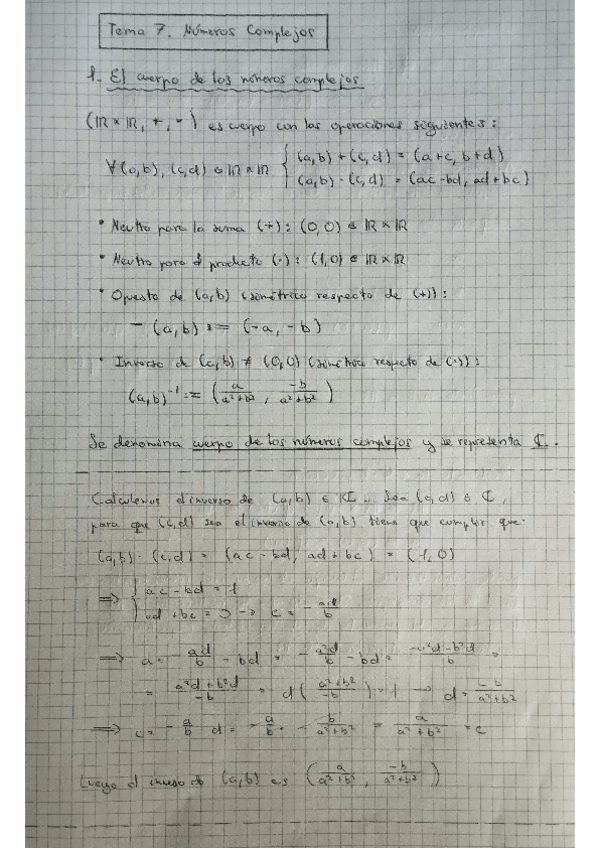 Tema 7. Números Complejos
1- El cuerpo de los números complejos
(ℝ×ℝ, +, ·) es cuerpo con las operaciones siguientes:
∀(a,b), (c,d) ∈ ℝ×ℝ { (a,b) + (c,d) = (a+c, b+d)
(a,b) · (c,d) = (ac-bd, ad+bc)
• Neutro para la suma (+): (0,0) ∈ ℝ×ℝ
• Neutro para el producto (·): (1,0) ∈ ℝ×ℝ
• Opuesto de (a,b) (simétrico respecto de (+)):
- (a,b) := (-a, -b)
• Inverso de (a,b) ≠ (0,0) (simétrico respecto de (·)):
(a,b)⁻¹ := (a/(a²+b²), -b/(a²+b²))
Se denomina cuerpo de los números complejos y se representa ℂ.
Calculemos el inverso de (a,b) ∈ ℂ. Sea (c,d) ∈ ℂ,
para que (c,d) sea el inverso de (a,b) tiene que cumplir que:
(a,b) · (c,d) = (ac - bd, ad + bc) = (1,0)
⟹ { ac - bd = 1
ad + bc = 0 → c = -ad/b
⟹ a · -ad/b - bd = -a²d/b - bd = (-a²d - b²d)/b =
= (a²d + b²d)/-b = d((a²+b²)/-b) = 1 → d = -b/(a²+b²)
⟹ c = -a/b · d = -a/b · -b/(a²+b²) = a/(a²+b²) = c
Luego el inverso de (a,b) es (a/(a²+b²), -b/(a²+b²))